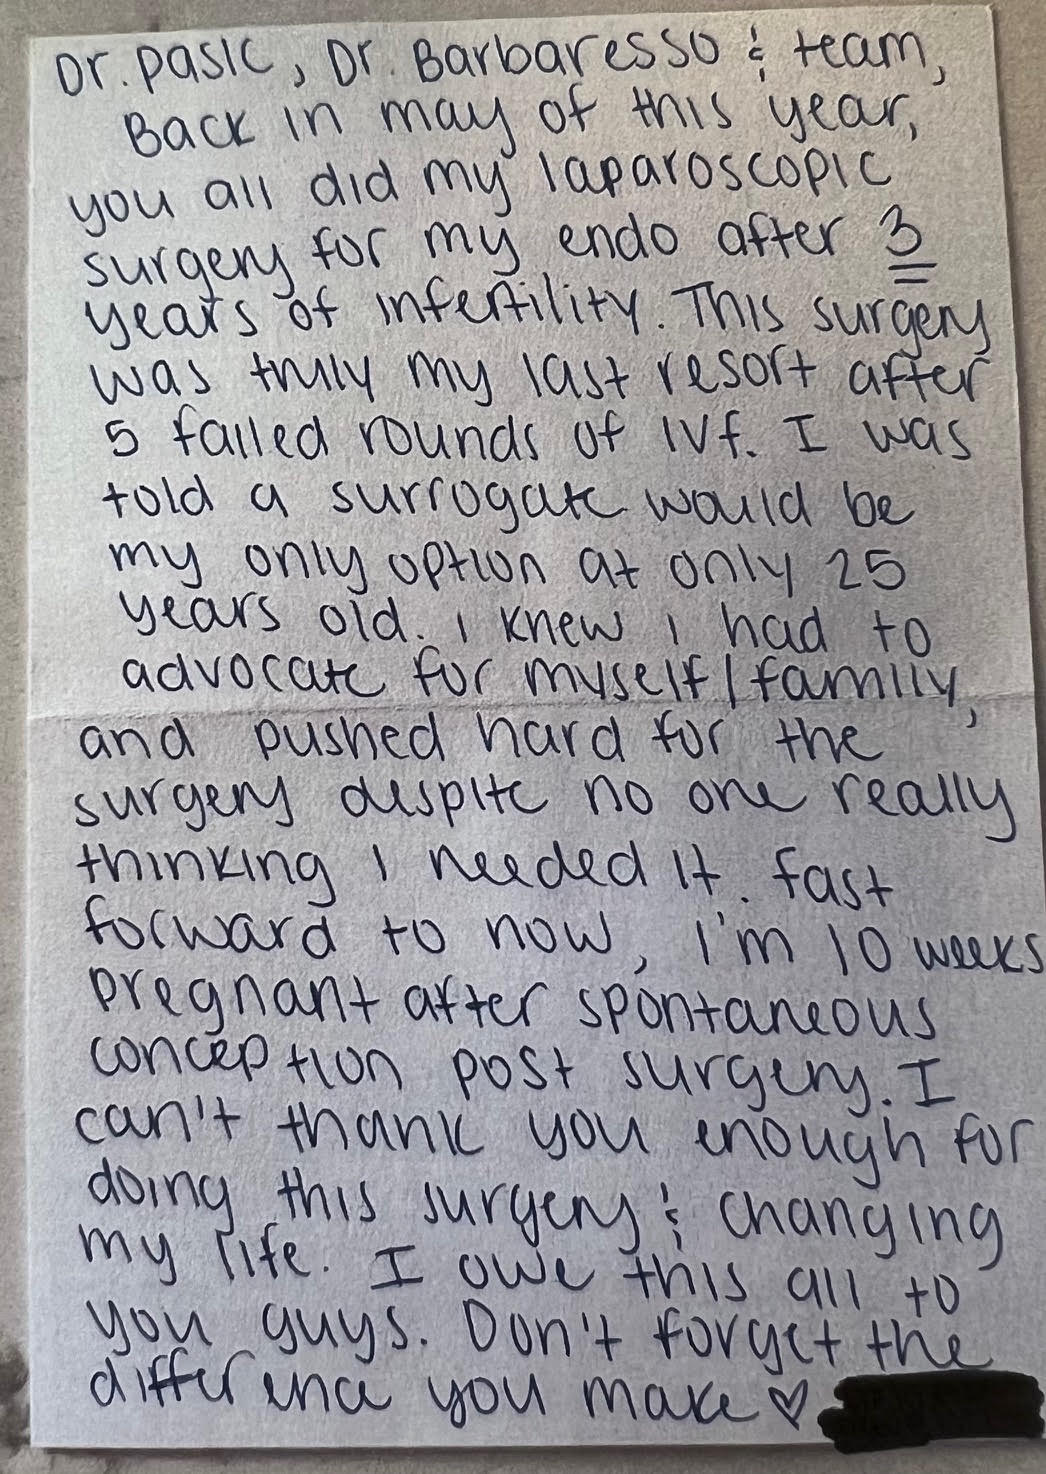 Dr. Pasic, Dr. Barbaresso & team,
Back in may of this year,
you all did my laparoscopic
surgery for my endo after 3
years of infertility. This surgery
was truly my last resort after
5 failed rounds of IVF. I was
told a surrogate would be
my only option at only 25
years old. I knew I had to
advocate for myself/family,
and pushed hard for the
surgery despite no one really
thinking I needed it. Fast
forward to now, I'm 10 weeks
pregnant after spontaneous
conception post surgery. I
can't thank you enough for
doing this surgery & changing
my life. I owe this all to
you guys. Don't forget the
difference you make ♡